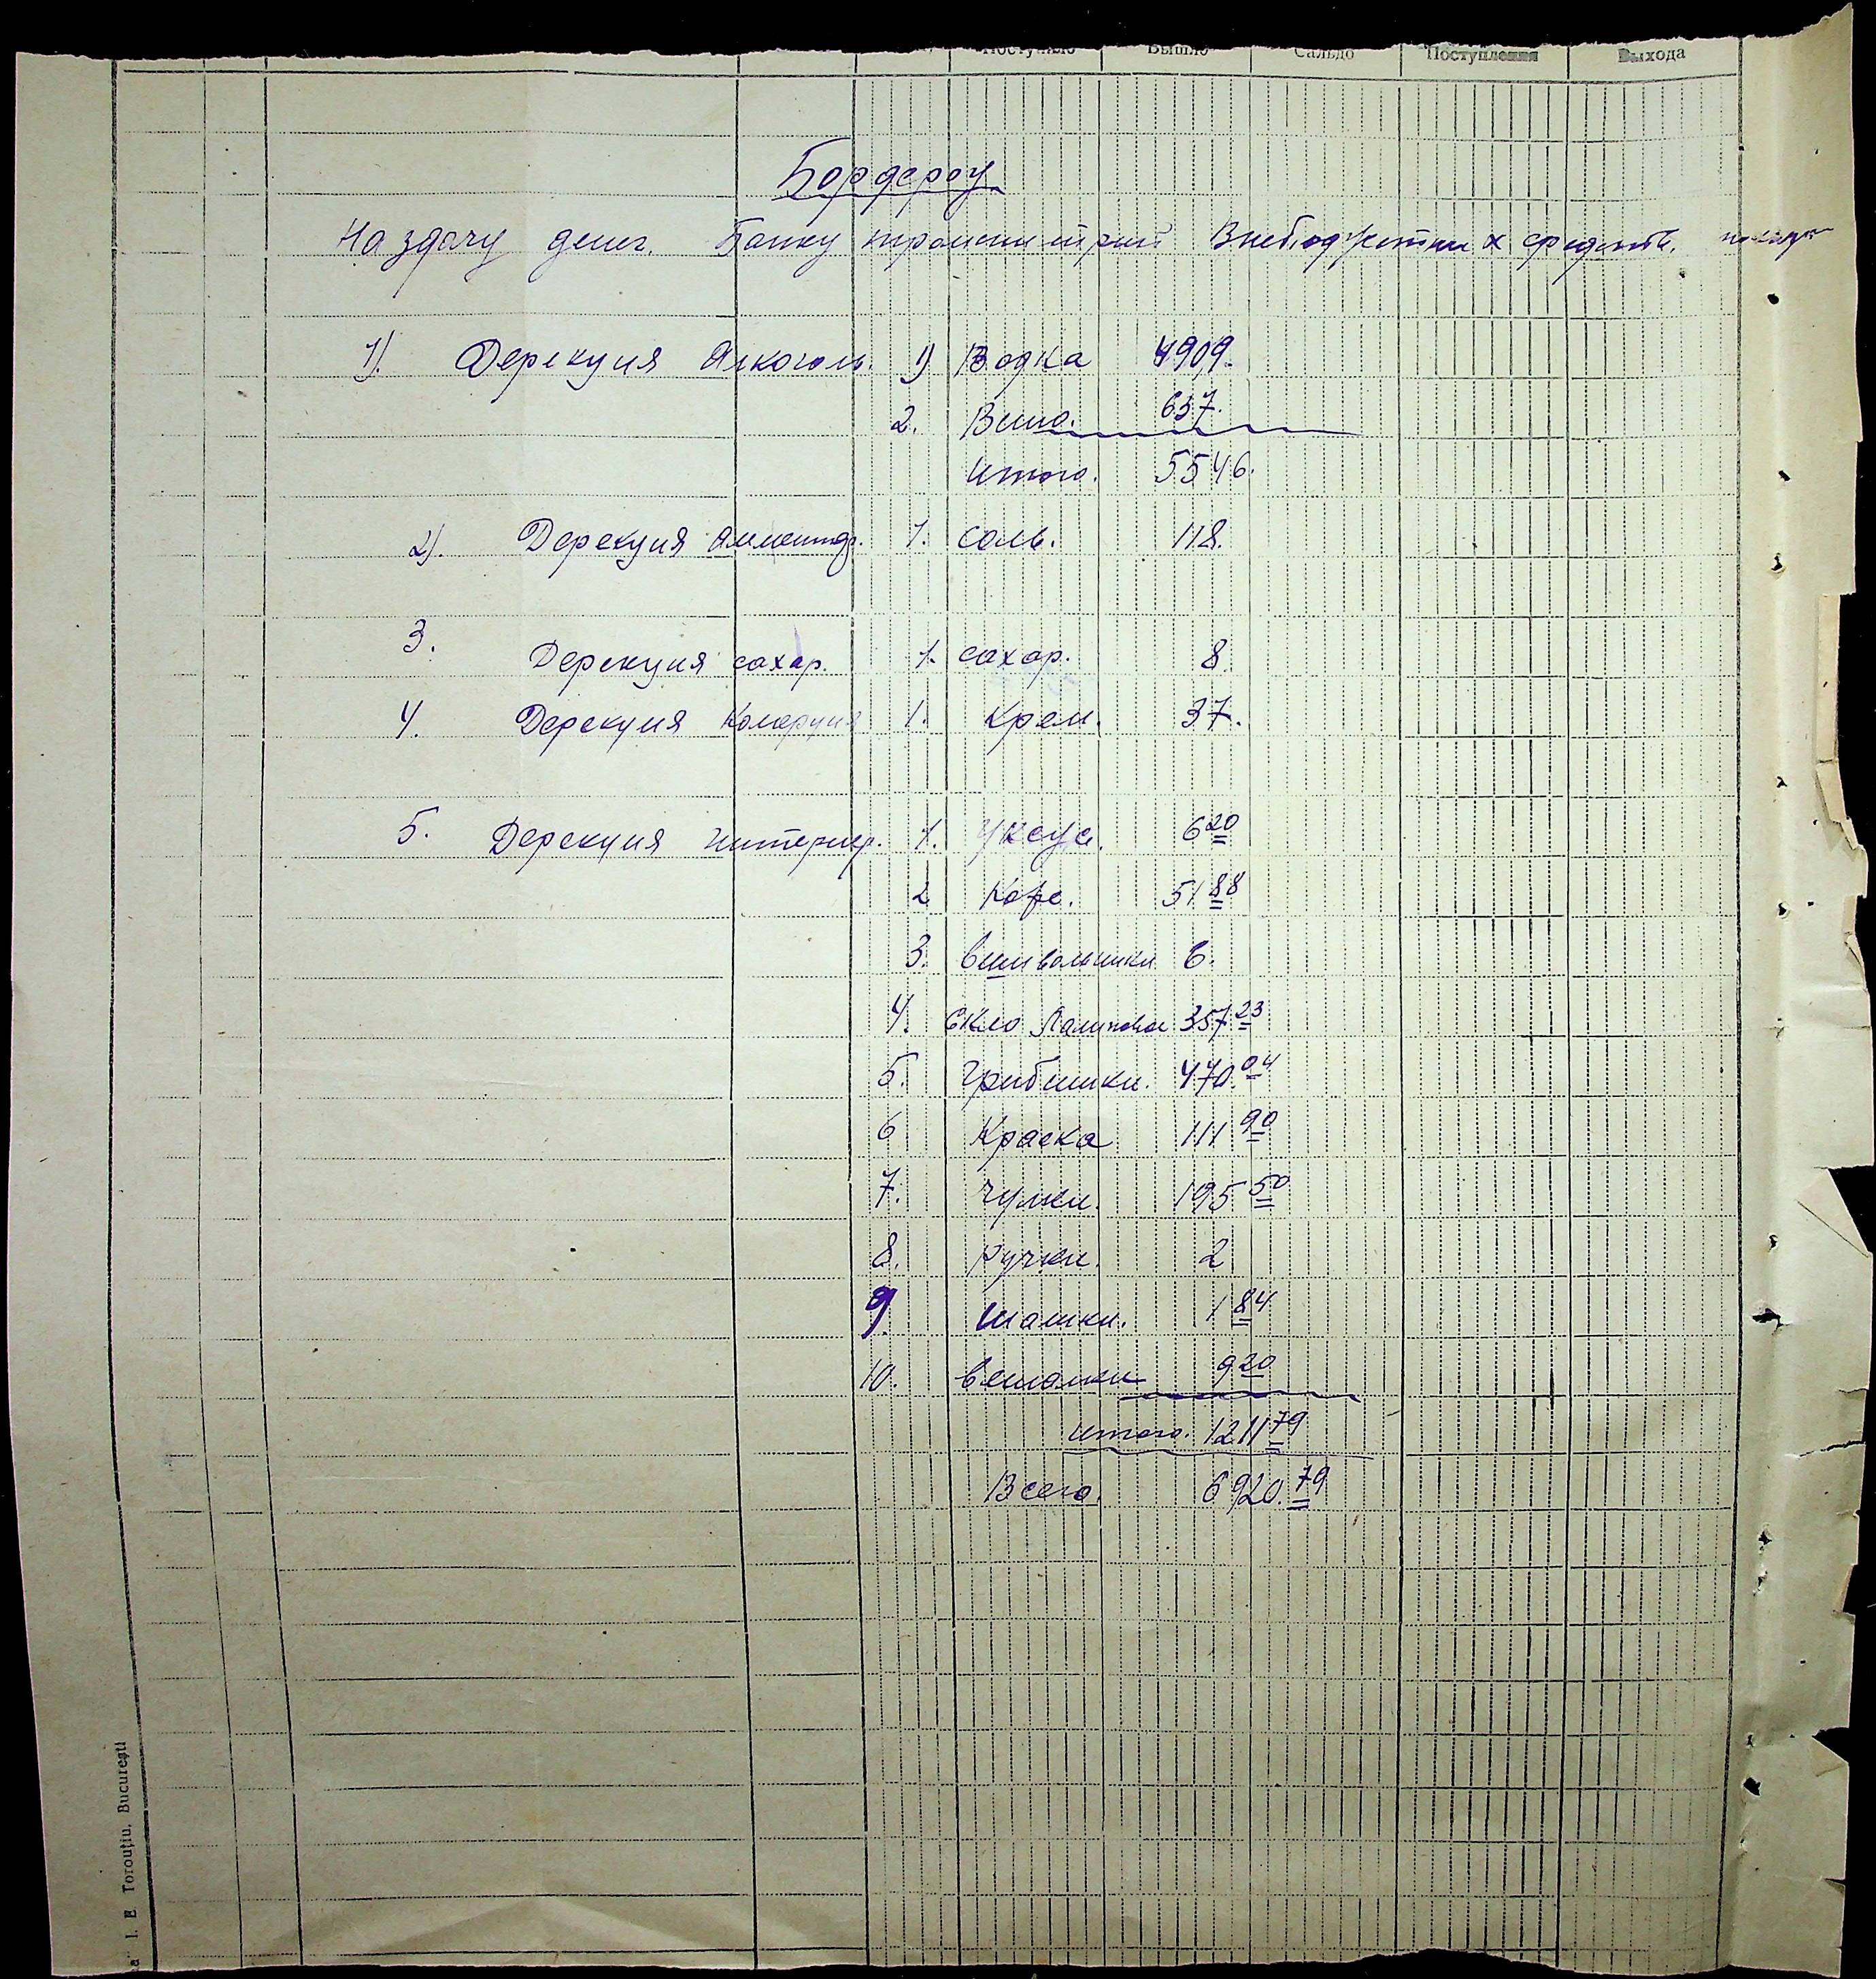 Поступило Вышло Сальдо Поступления Выхода
Бордероу
На здачу денег. Банку транснистрий Внебюджетных средств.
1). Дерекция Алкоголь. 1) Водка 4909.
2. Вино. 637.
Итого. 5546.
2). Дерекция Алиментар. 1. Соль. 118.
3. Дерекция сахар. 1. сахар. 8.
4. Дерекция Комерция 1. Крем. 37.
5. Дерекция интернр. 1. Уксус. 6 20
2 Кофе. 51 88
3. 6.
4. Скло Ламповое 357 23
5. Грибешки. 470.04
6 Краска 111 90
7. Чулки. 195 50
8. Ручки. 2
9. Шашки. 1 84
10. вешалки 9 20
итого. 1211 79
Всего. 6920.79
I. E Torouțiu, București